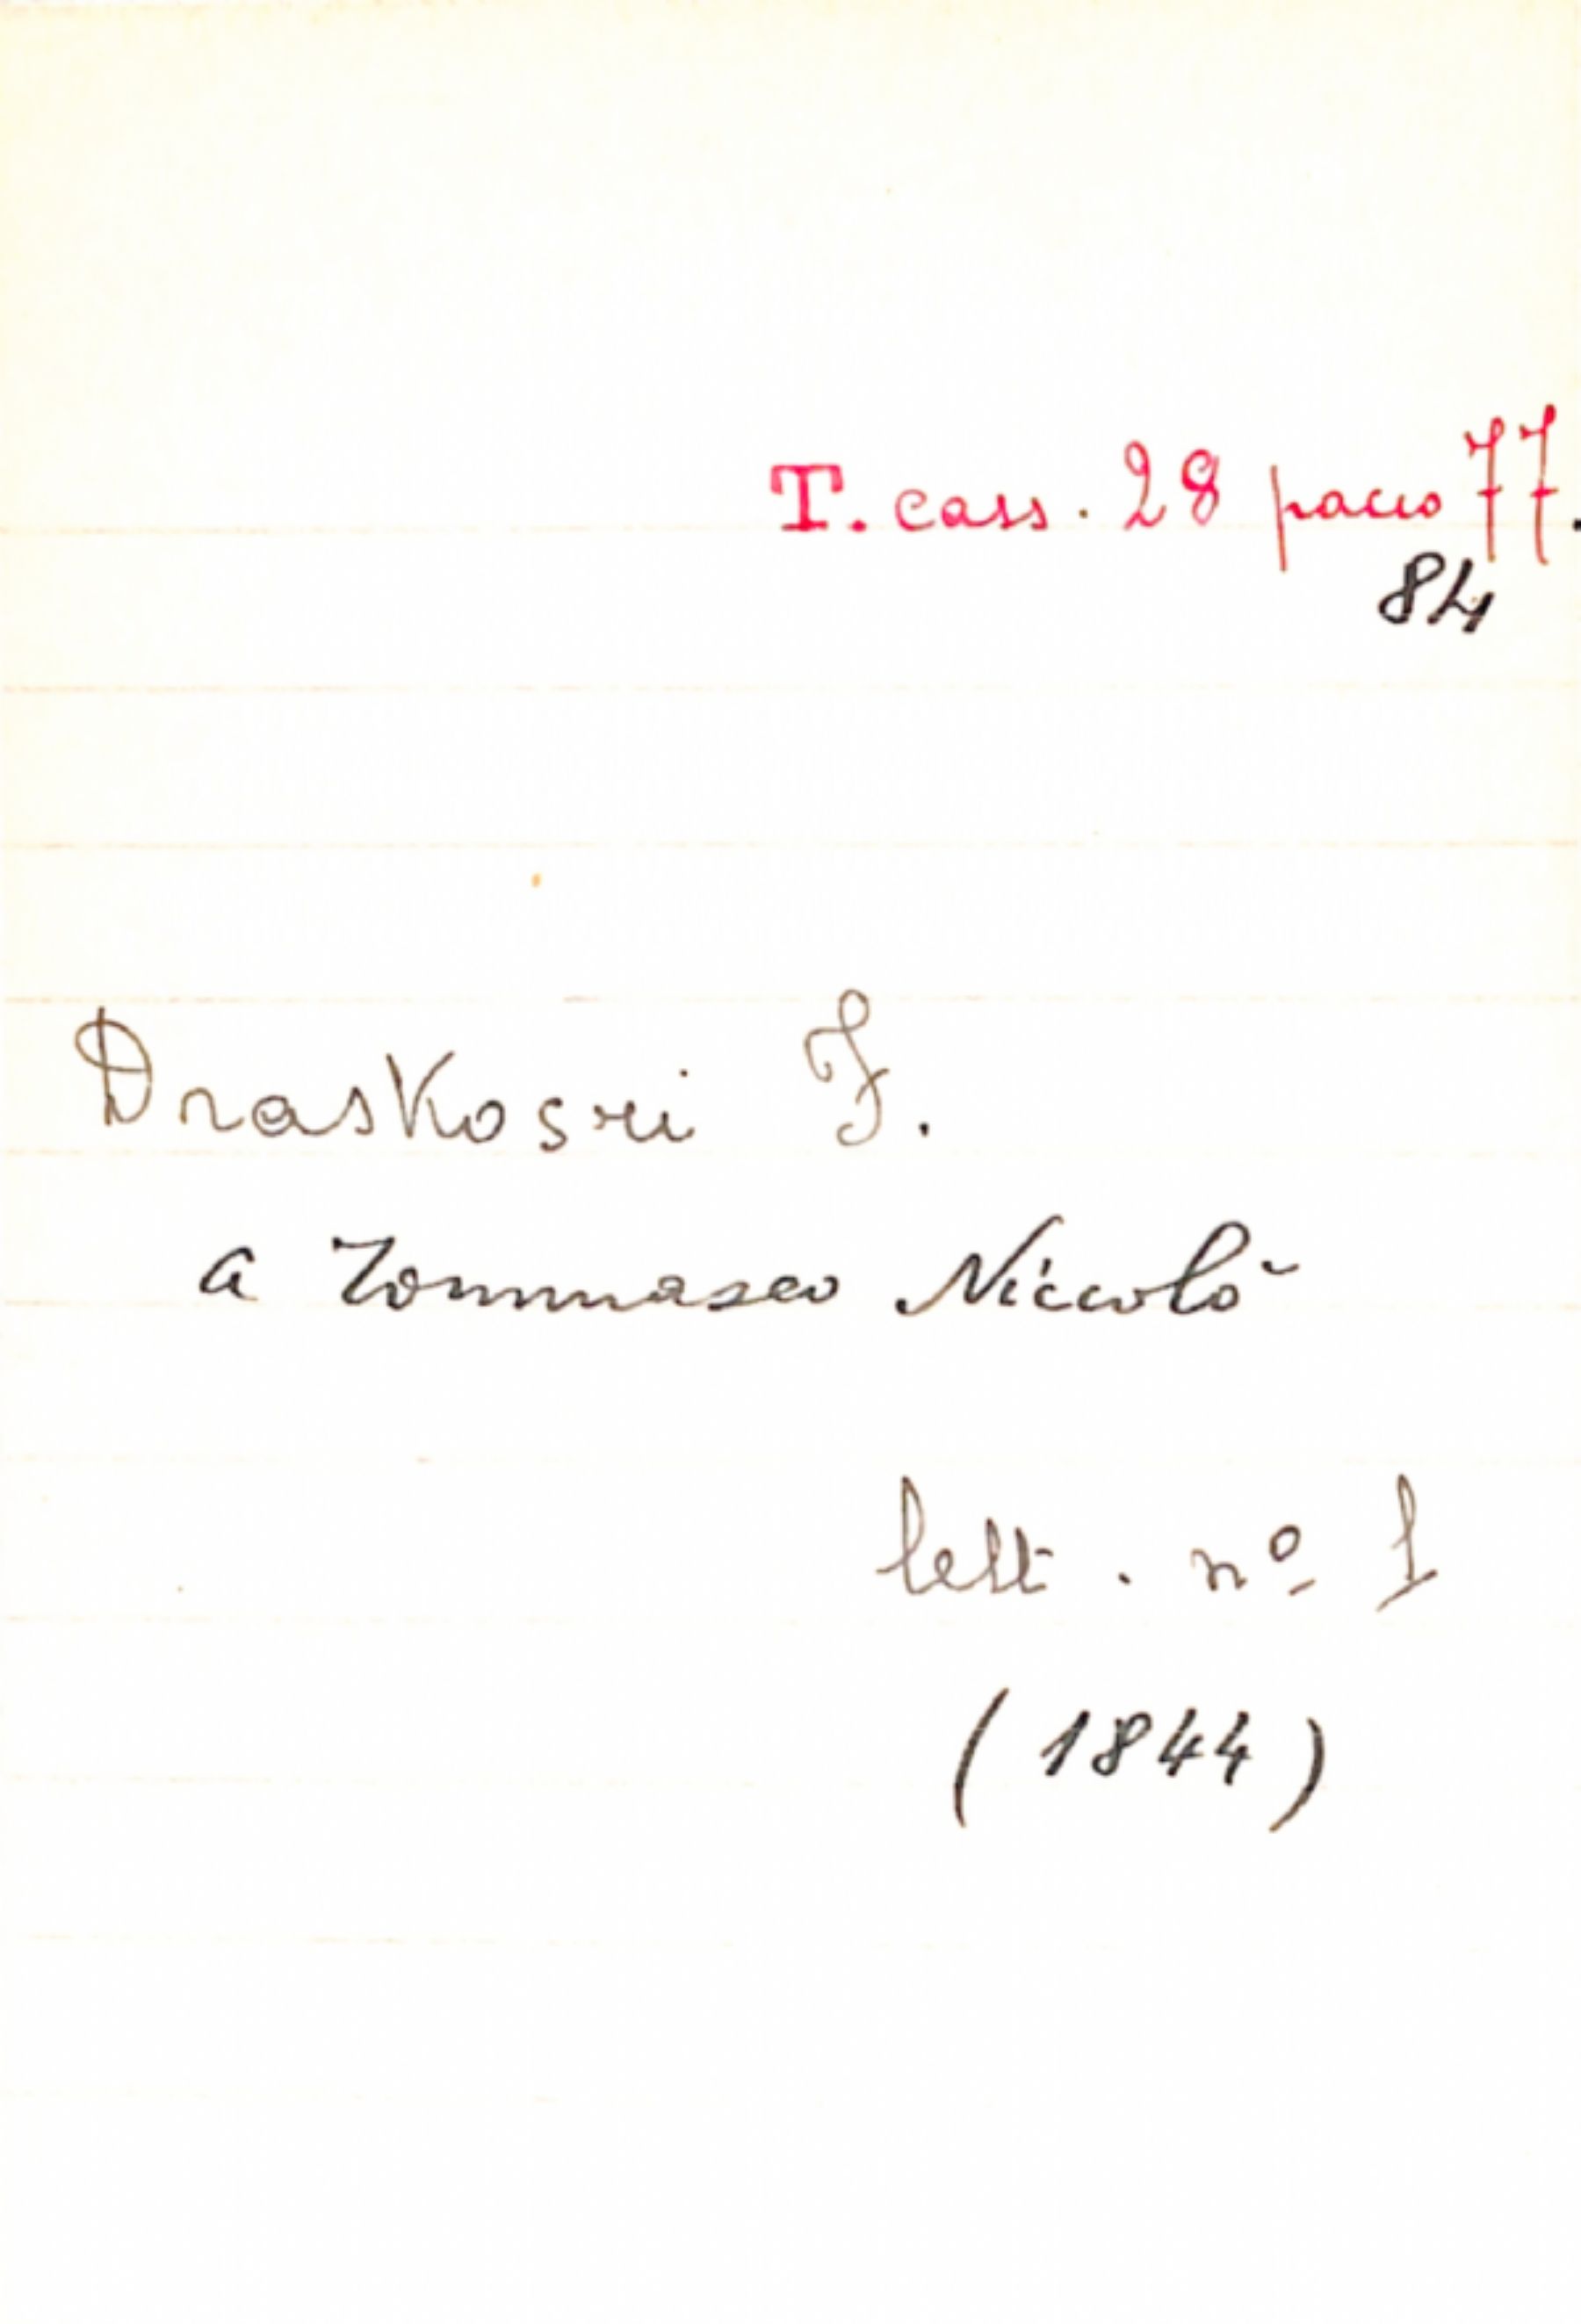 T. cass. 28 pacco 77.
84
Draskosri F.
a Tommaseo Niccolò
lett. nº 1
(1844)